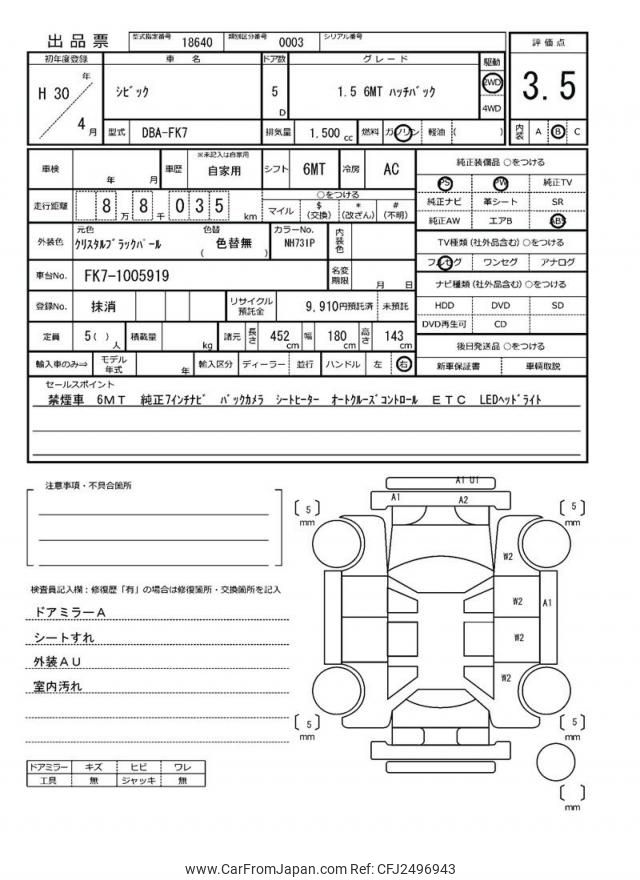 出品票
型式指定番号 18640 類別区分番号 0003 シリアル番号
初年度登録 車名 ドア数 グレード 駆動 評価点
H 30 年 4 月
シビック 5 D 1.5 6MT ハッチバック 2WD 4WD
3.5
型式 DBA-FK7 排気量 1,500 cc 燃料 ガソリン 軽油 ( )
内装 A B C
車検 年 月 車歴 ※未記入は自家用 自家用 シフト 6MT 冷房 AC
走行距離 8 万 8 千 0 3 5 km
○をつける
マイル $ (交換) * (改ざん) # (不明)
外装色 元色 クリスタルブラックパール 色替 ( 色替無 ) カラーNo. NH731P 内装色
車台No. FK7-1005919 名変期限 月 日
登録No. 抹消 リサイクル預託金 9,910円預託済 未預託
定員 5 ( ) 人 積載量 kg 諸元 長さ 452 cm 幅 180 cm 高さ 143 cm
輸入車のみ⇒ モデル年式 年 輸入区分 ディーラー 並行 ハンドル 左 右
純正装備品 ○をつける
PS PW 純正TV
純正ナビ 革シート SR
純正AW エアB ABS
TV種類 (社外品含む) ○をつける
フルセグ ワンセグ アナログ
ナビ種類 (社外品含む) ○をつける
HDD DVD SD
DVD再生可 CD
後日発送品 ○をつける
新車保証書 車輌取説
セールスポイント
禁煙車 6MT 純正7インチナビ バックカメラ シートヒーター オートクルーズコントロール ETC LEDヘッドライト
注意事項・不具合箇所
検査員記入欄：修復歴「有」の場合は修復箇所・交換箇所を記入
ドアミラーA
シートすれ
外装AU
室内汚れ
ドアミラー キズ ヒビ ワレ
工具 無 ジャッキ 無
A1 U1
A1 A2
[ 5 ] mm
[ 5 ] mm
W2
W2 A1
W2
W2
[ 5 ] mm
[ 5 ] mm
[ ] mm
www.CarFromJapan.com Ref: CFJ2496943